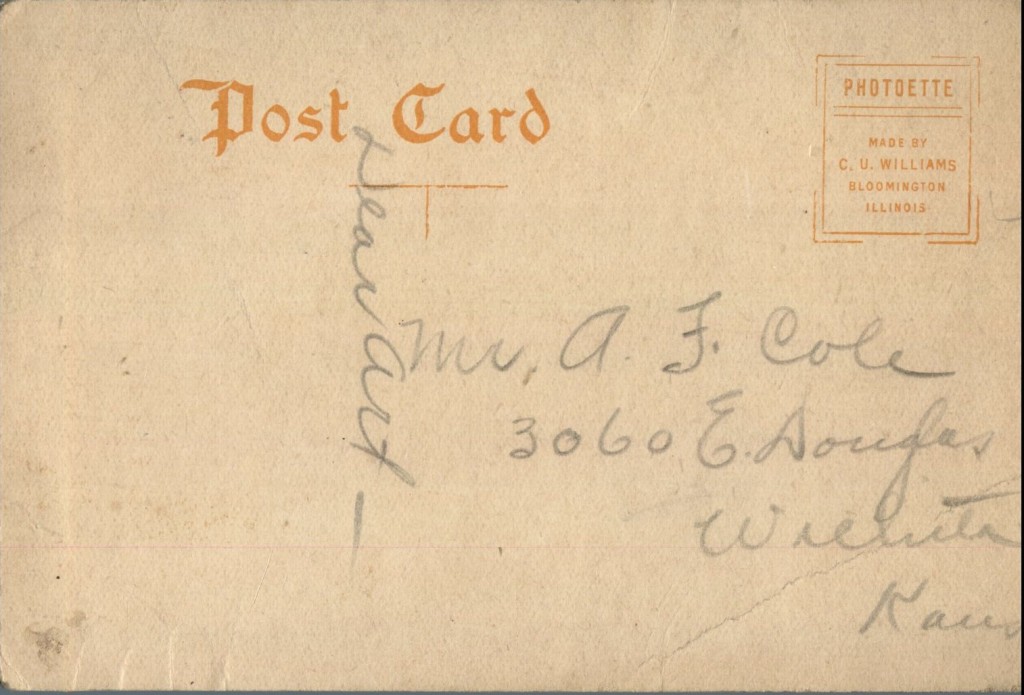 Post Card
PHOTOETTE
MADE BY
C. U. WILLIAMS
BLOOMINGTON
ILLINOIS
Dear Art —
Mr. A. F. Cole
3060 E. Douglas
Wichita
Kans